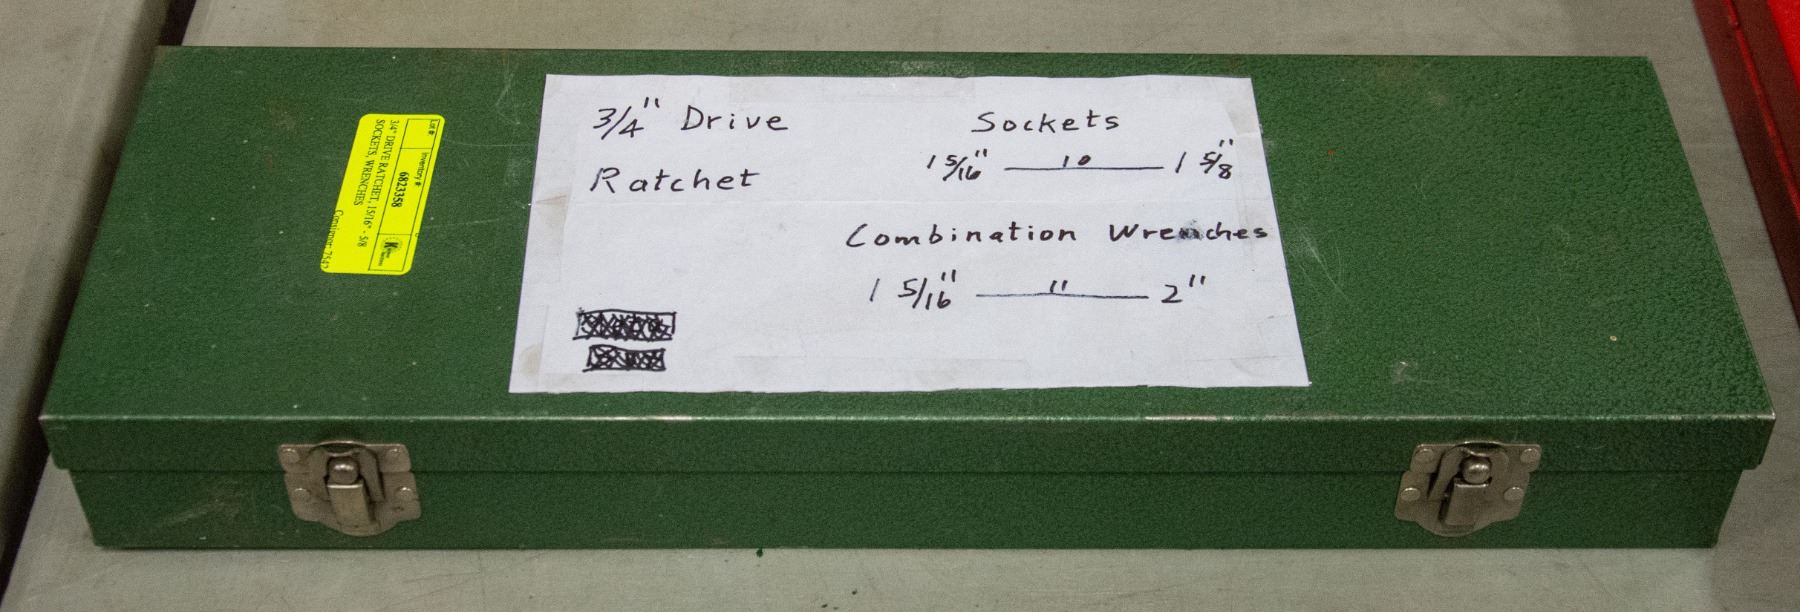 3/4" Drive
Ratchet
Sockets
1 5/16" 10 1 5/8"
Combination Wrenches
1 5/16" 11 2"
Lot #
Inventory #
6823358
3/4" DRIVE RATCHET, 15/16" - 5/8
SOCKETS, WRENCHES